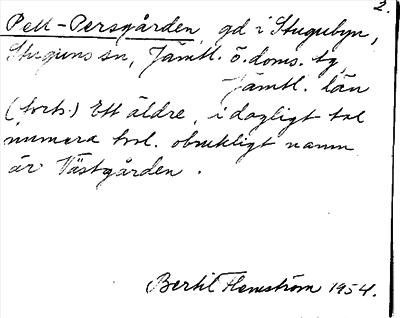 2.
Pell-Persgården, gd i Stugubyn,
Stuguns sn, Jämtl. ö. doms. tg,
Jämtl. län
(forts.) Ett äldre, i dagligt tal
numera hvl. obrukligt namn
är Västgården.
Bertil Flemström 1954.